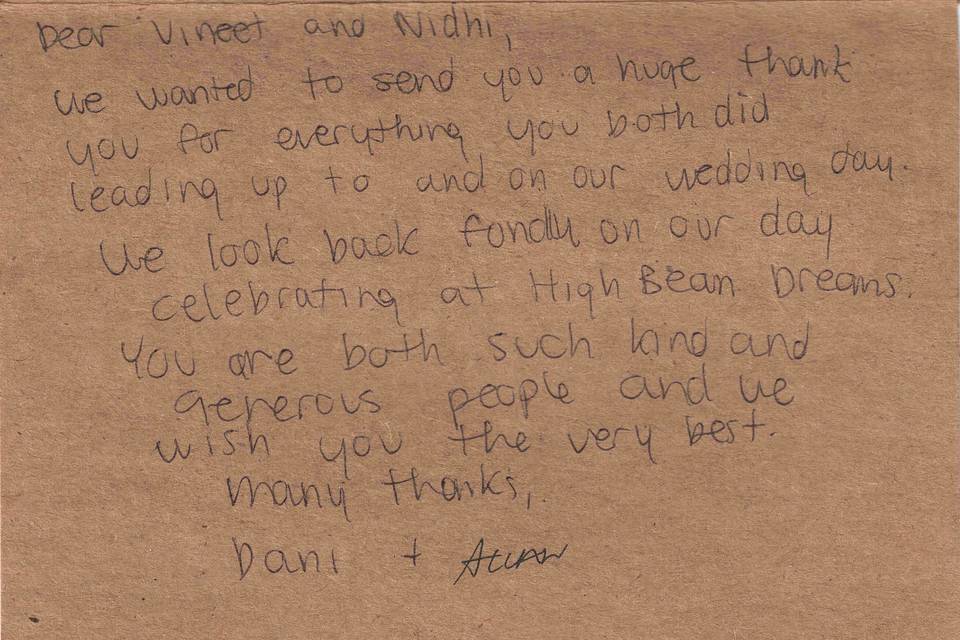 Dear Vineet and Nidhi,
We wanted to send you a huge thank
you for everything you both did
leading up to and on our wedding day.
We look back fondly on our day
celebrating at High Bean Dreams.
You are both such kind and
generous people and we
wish you the very best.
Many thanks,
Dani +